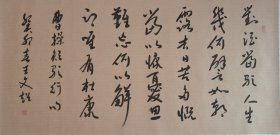 對酒當歌人生
幾何譬如朝
露去日苦多慨
當以慷憂思
難忘何以解
憂唯有杜康
曹操短歌行
癸卯 王文